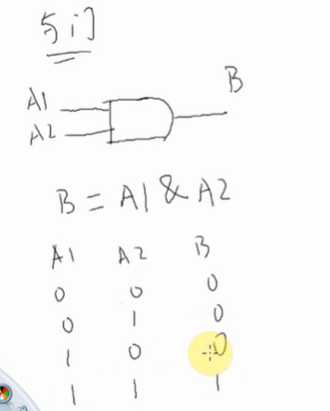 与门
A1
A2
B
B = A1 & A2
A1 A2 B
0 0 0
0 1 0
1 0 0
1 1 1